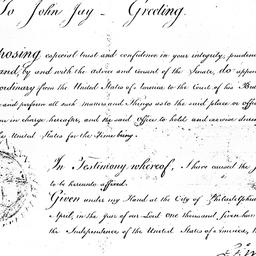 To John Jay - Greeting.
posing especial trust and confidence in your integrity, pruden
and, by and with the advice and consent of the Senate, do appoi
ordinary from the United States of America to the Court of his Bri
and perform all such matters and things as to the said place or office
me in charge hereafter, and the said office to hold and exercise durin
United States for the time being.
In Testimony whereof, I have caused the
to be hereunto affixed.
Given under my Hand at the City of Philadelphia
April, in the year of our Lord one thousand, seven hun
the Independence of the United States of America, th